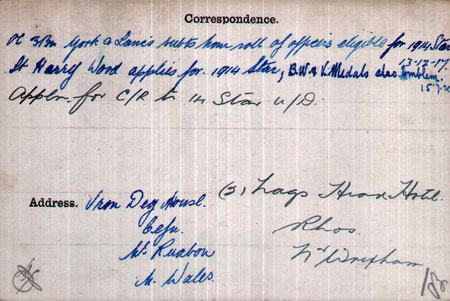 Correspondence.
OC 3/Bn York & Lancs subts nom: roll of officers eligible for 1914 Star
13-12-17.
Lt Harry Wood applies for 1914 Star, B.W & V. Medals also Emblem.
Appln. for C/R to 14 Star u/D.
Address. Vron Deg House.
Cefn.
Nr Ruabon
N. Wales.
(3) Nags Head Hotel.
Rhos.
Nr Wrexham